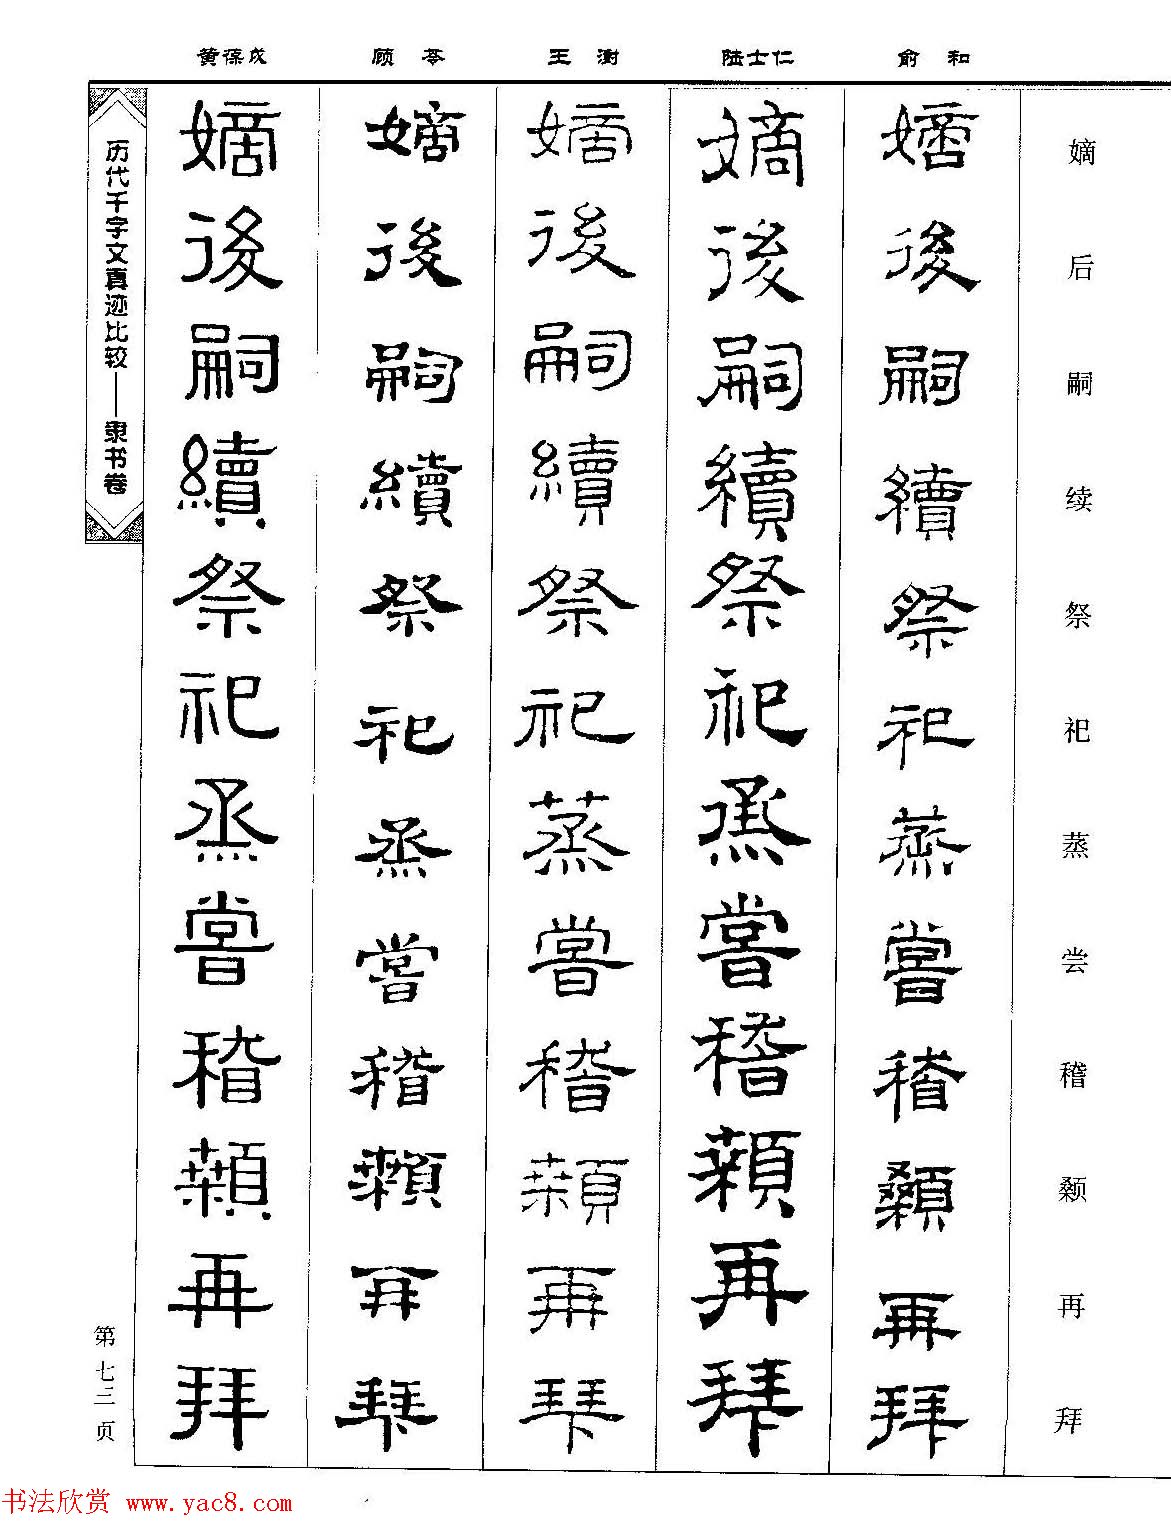 俞和
陆士仁
王澍
顾苓
黄葆戉
嫡后嗣续祭祀蒸尝稽颡再拜
嫡後嗣續祭祀蒸嘗稽顙再拜
嫡後嗣續祭祀烝嘗稽顙再拜
嫡後嗣續祭祀蒸嘗稽顙再拜
嫡後嗣續祭祀烝嘗稽顙再拜
嫡後嗣續祭祀烝嘗稽顙再拜
历代千字文真迹比较——隶书卷
第七三页
书法欣赏 www.yac8.com